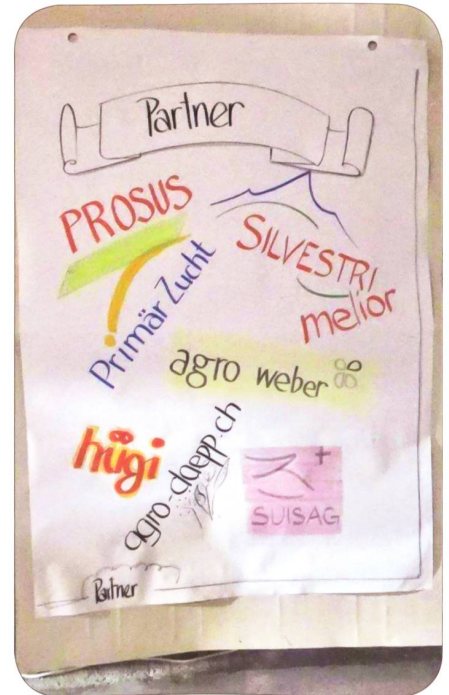 Partner
PROSUS
SILVESTRI
Primär Zucht
melior
agro weber
hügi
agro-daepp.ch
SUISAG
Partner